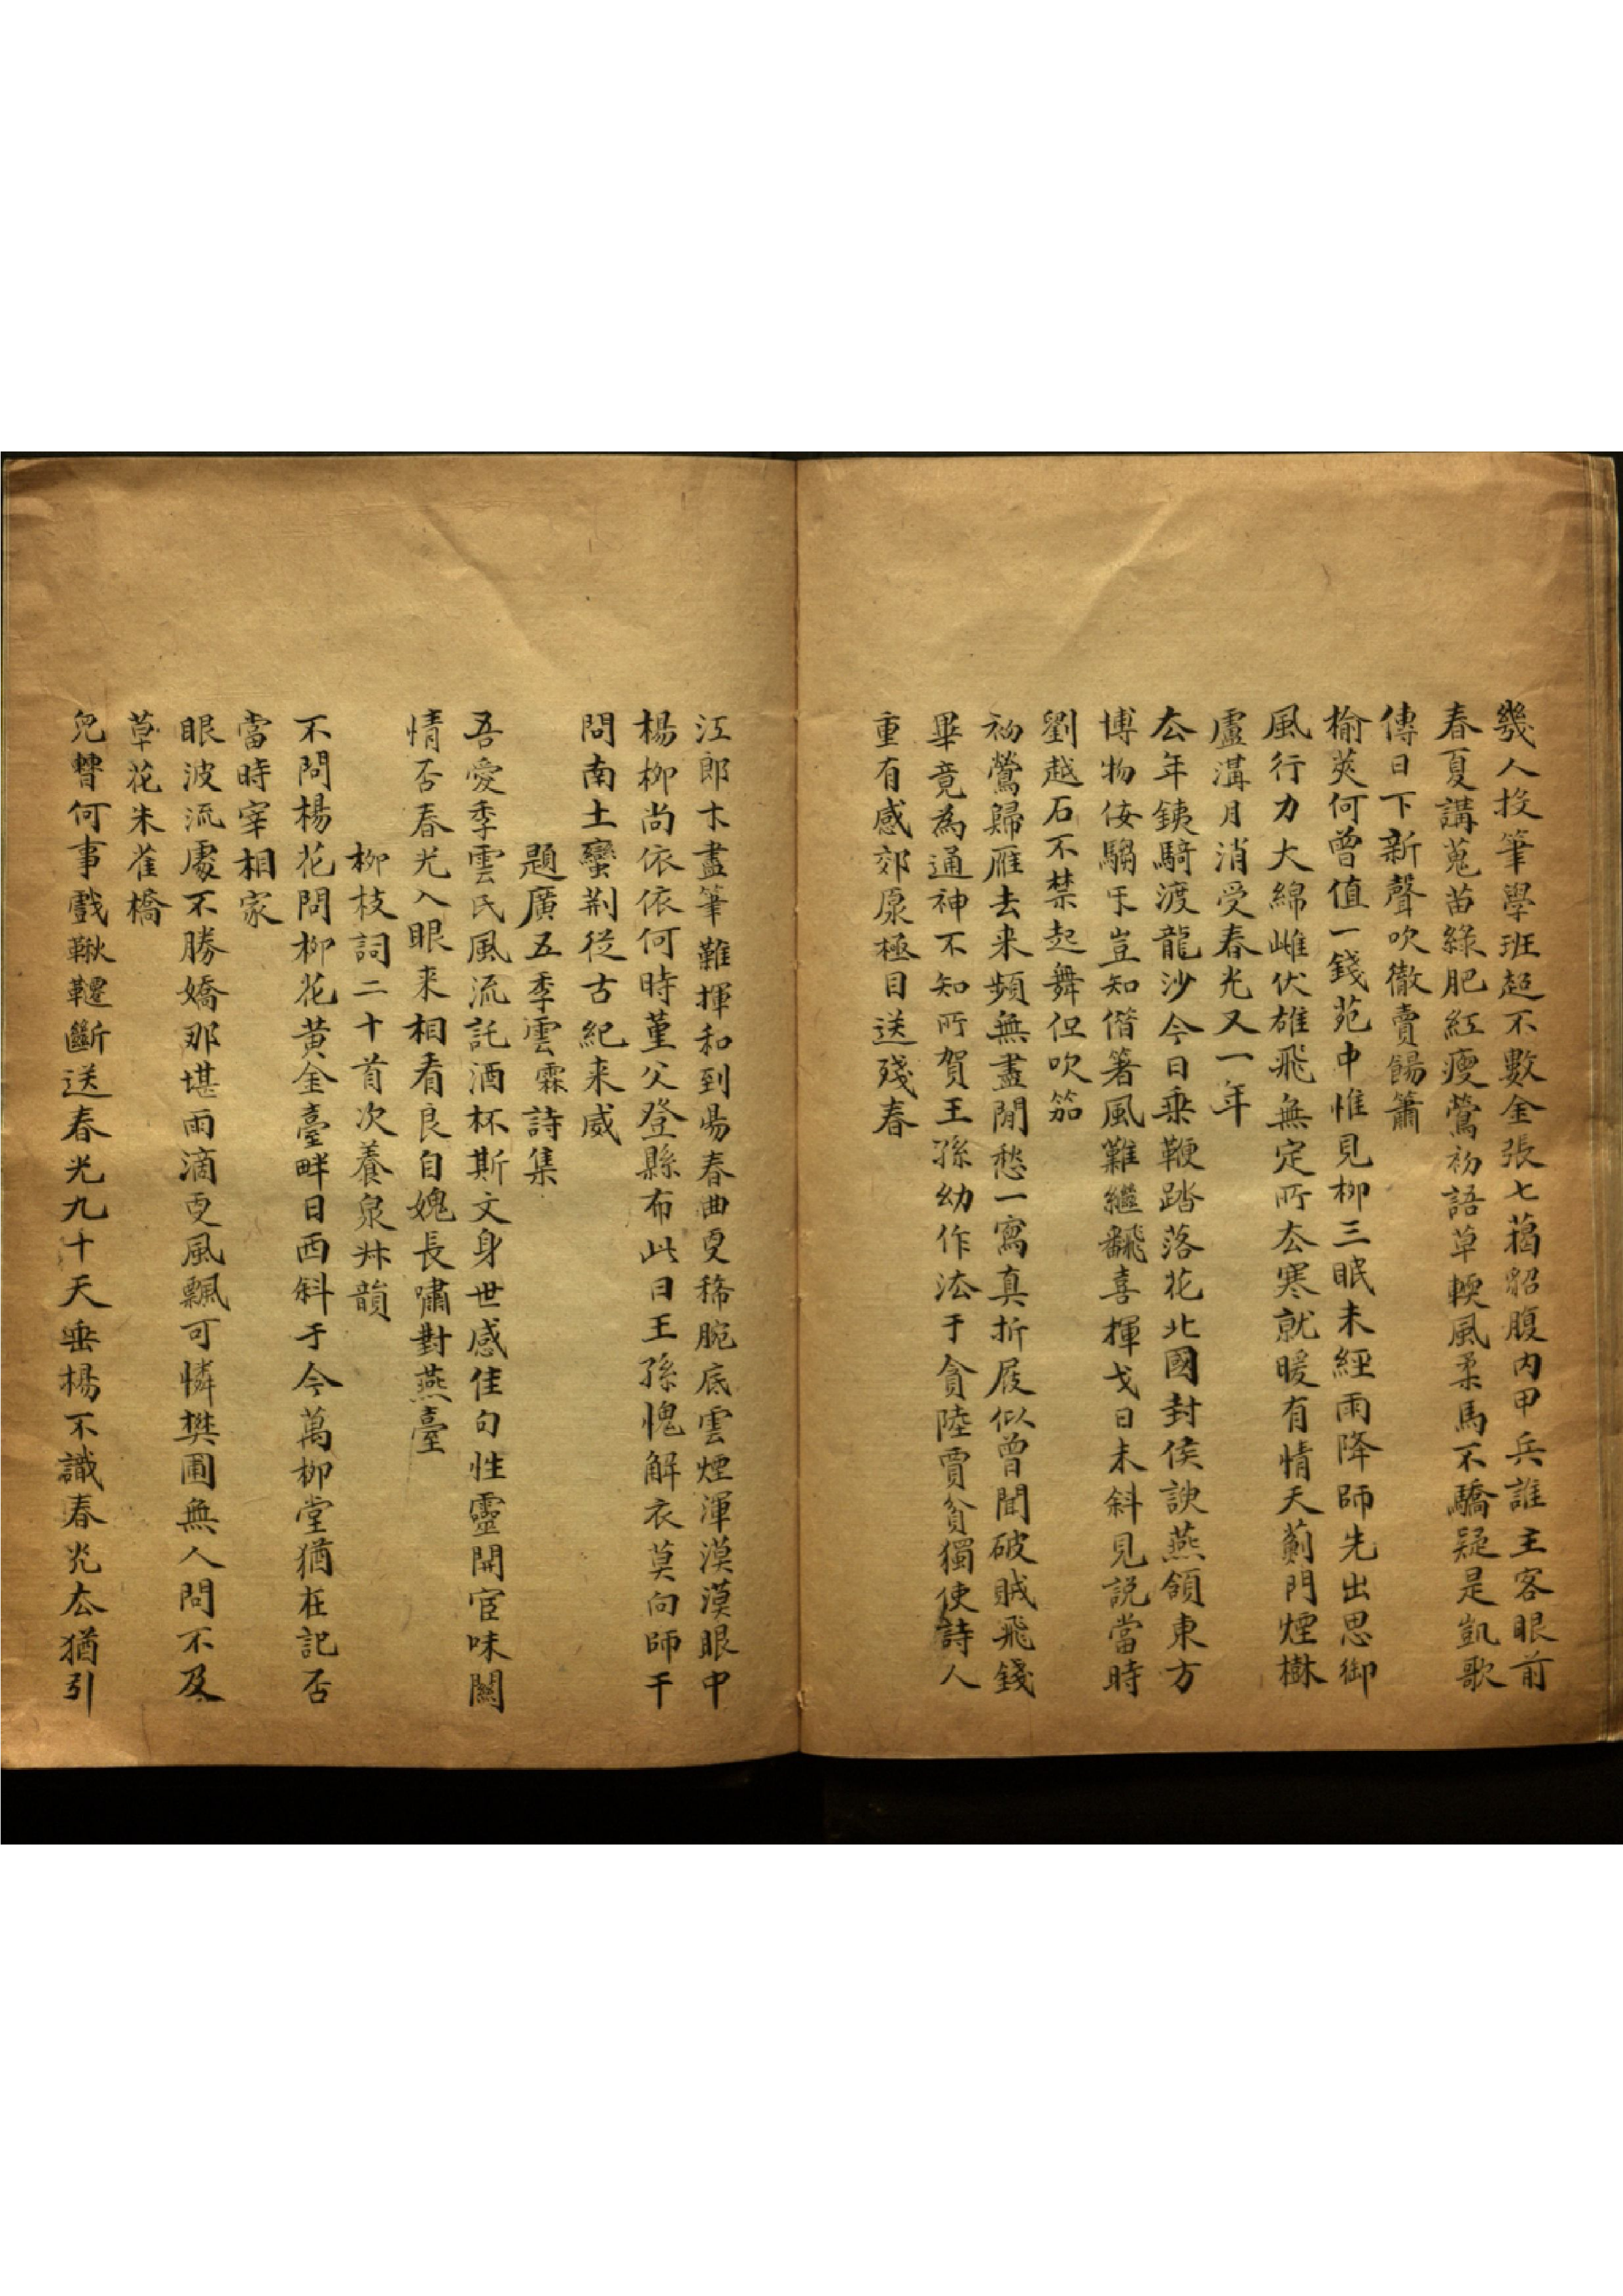 幾人投筆學班超不數金張七葛貂腹內甲兵誰主客眼前
春夏講蒐苗綠肥紅瘦鶯初語草輭風柔馬不驕疑是凱歌
傳日下新聲吹徹賣餳簫
榆莢何曾值一錢苑中惟見柳三眠未經雨降師先出思御
風行力大綿雌伏雄飛無定所厺寒就暖有情天薊門煙樹
盧溝月消受春光又一年
厺年銕騎渡龍沙今日乗鞭踏落花北國封侯諛燕頷東方
博物侫騶牙豈知借箸風難繼飜喜揮戈日未斜見説當時
劉越石不禁起舞但吹笳
初鶯歸雁去来頻無盡閒愁一寫真折屐似曾聞破賊飛錢
畢竟為通神不知所賀王孫幼作法于貪陸賈貧獨使詩人
重有感郊原極目送殘春
江郎才盡筆難揮和到昜春曲更稀腕底雲煙渾漠漠眼中
楊柳尚依依何時菫父登縣布此日王孫愧解衣莫向師干
問南土蠻荆從古紀来威
題廣五季雲霖詩集
吾愛季雲民風流託酒杯斯文身世感佳句性靈開宦味闗
情否春光入眼来相看良自媿長嘯對燕臺
柳枝詞二十首次養泉牀韻
不問楊花問柳花黄金臺畔日西斜于今萬柳堂猶在記否
當時宰相家
眼波流處不勝嬌那堪雨滴更風飄可憐樊圃無人問不及
草花朱雀橋
兒𣈆何事戲鞦韆斷送春光九十天垂楊不識春光厺猶引